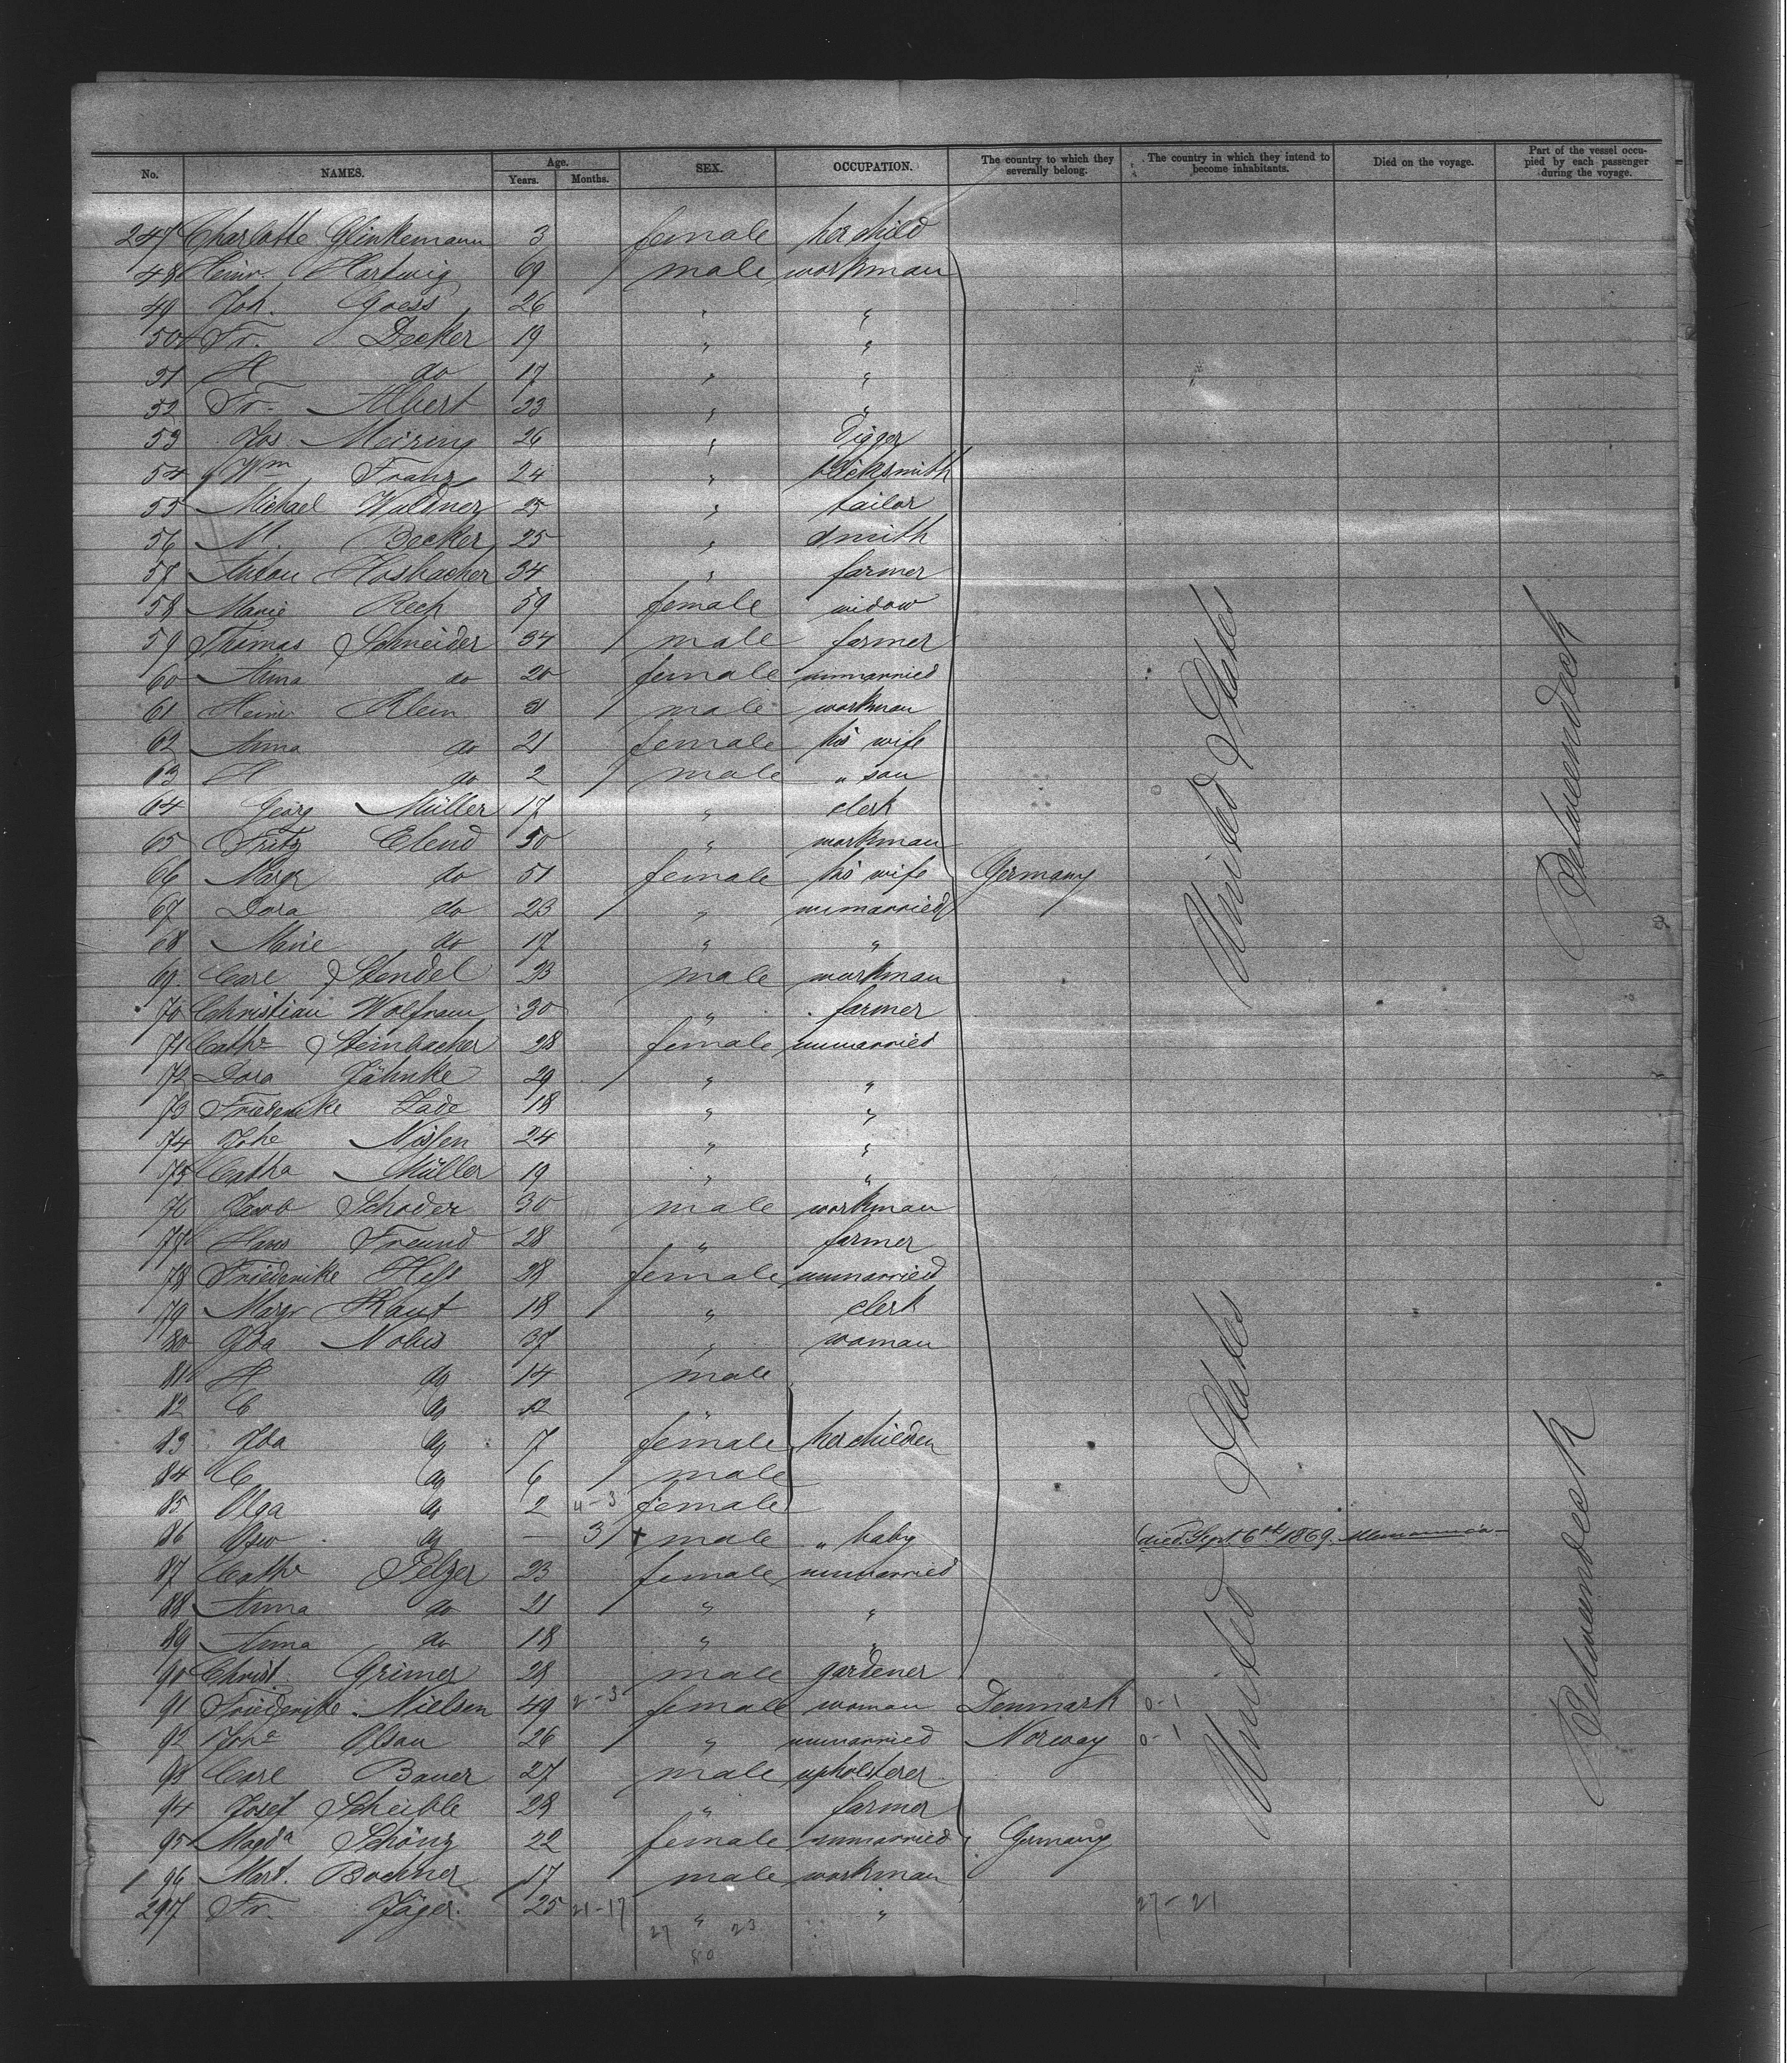 No. NAMES. Age. Years. Months. SEX. OCCUPATION. The country to which they severally belong. The country in which they intend to become inhabitants. Died on the voyage. Part of the vessel occupied by each passenger during the voyage.
247 Charlotte Glinkemann 3 female her child
48 Heinr. Hartwig 69 male workman
49 Joh. Goess 26 " "
50 Fr. Decker 19 " "
51 H do 17 " "
52 Fr. Albert 23 " "
53 Jos. Meiring 26 " digger
54 Wm Franz 24 "
55 Michael Waldner 25 " tailor
56 Becker 25 " smith
57 Hosbacher 34 " farmer
58 Marie Rech 59 female widow
59 Thomas Schneider 34 male farmer
60 Anna do 20 female unmarried
61 Heinr Klein 31 male workman
62 Anna do 21 female his wife
63 H do 2 male " son
64 Georg Müller 17 " clerk
65 Fritz Elend 50 " workman
66 Margr do 51 female his wife Germany
67 Dora do 23 " unmarried
68 Marie do 17 " "
69 Carl Stendel 23 male workman
70 Christian Wolfram 30 " farmer
71 Cathe Steinbacher 28 female unmarried
72 Dora Jähnke 29 " "
73 Friederike Zade 18 " "
74 Johe 24 " "
75 Catha Müller 19 " "
76 Jacob Schoder 30 male workman
77 Hans Freund 28 " farmer
78 Friederike Hess 28 female unmarried
79 Margr Kaut 18 " clerk
80 Ida Nobis 37 " woman
81 H do 14 male
82 C do 12 "
83 Ida do 7 female her children
84 C do 6 male
85 Olga do 2 4-3 female
86 do — 3 + male " baby died Sept 6th 1869
87 Cathe Pelzer 23 female unmarried
88 Anna do 21 " "
89 Anna do 18 " "
90 Christ. Grimer 28 male gardener
91 Friederike Nielsen 49 2-3 female woman Denmark 0-1
92 Johe Olsen 26 " unmarried Norway 0-1
93 Carl Bauer 27 male upholsterer
94 Josef Scheible 28 " farmer
95 Magda Schönz 22 female unmarried Germany
96 Mart. Bochner 17 male workman
297 Fr. Jäger 25 21-17 " " 27-21
27 23
50
United States
United States
Betweendeck
Betweendeck